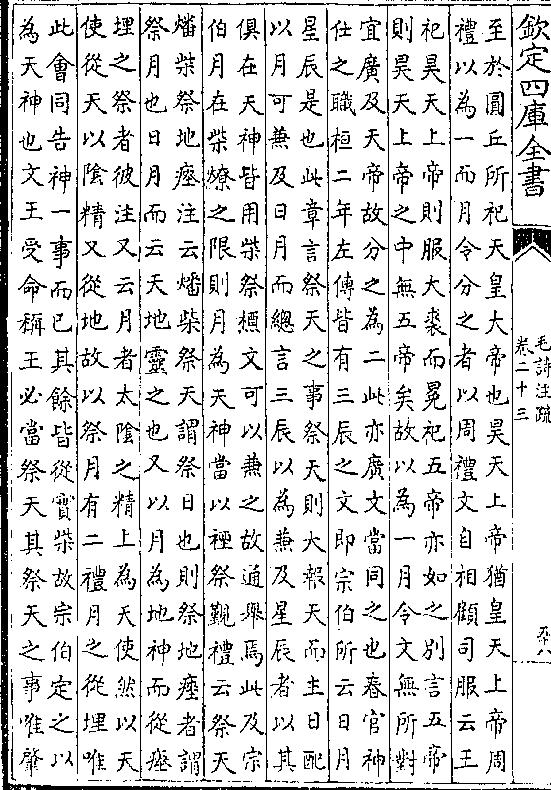 欽定四庫全書
毛詩注疏
卷二十三
至於圓丘所祀天皇大帝也昊天上帝猶皇天上帝周
禮以為一而月令分之者以周禮文自相顧司服云王
祀昊天上帝則服大裘而冕祀五帝亦如之別言五帝
則昊天上帝之中無五帝矣故以為一月令文無所對
宜廣及天帝故分之為二此亦廣文當同之也春官神
仕之職桓二年左傳皆有三辰之文即宗伯所云日月
星辰是也此章言祭天之事祭天則大報天而主日配
以月可兼及日月而總言三辰以為兼及星辰者以其
俱在天神皆用柴祭標文可以兼之故通舉焉此及宗
伯月在柴燎之限則月為天神當以禋祭覲禮云祭天
燔柴祭地瘞注云燔柴祭天謂祭日也則祭地瘞者謂
祭月也日月而云天地靈之也又以月為地神而從瘞
埋之祭者彼注又云月者太陰之精上為天使然以天
使從天以陰精又從地故以祭月有二禮月之從埋唯
此會同告神一事而已其餘皆從實柴故宗伯定之以
為天神也文王受命稱王必當祭天其祭天之事唯肇